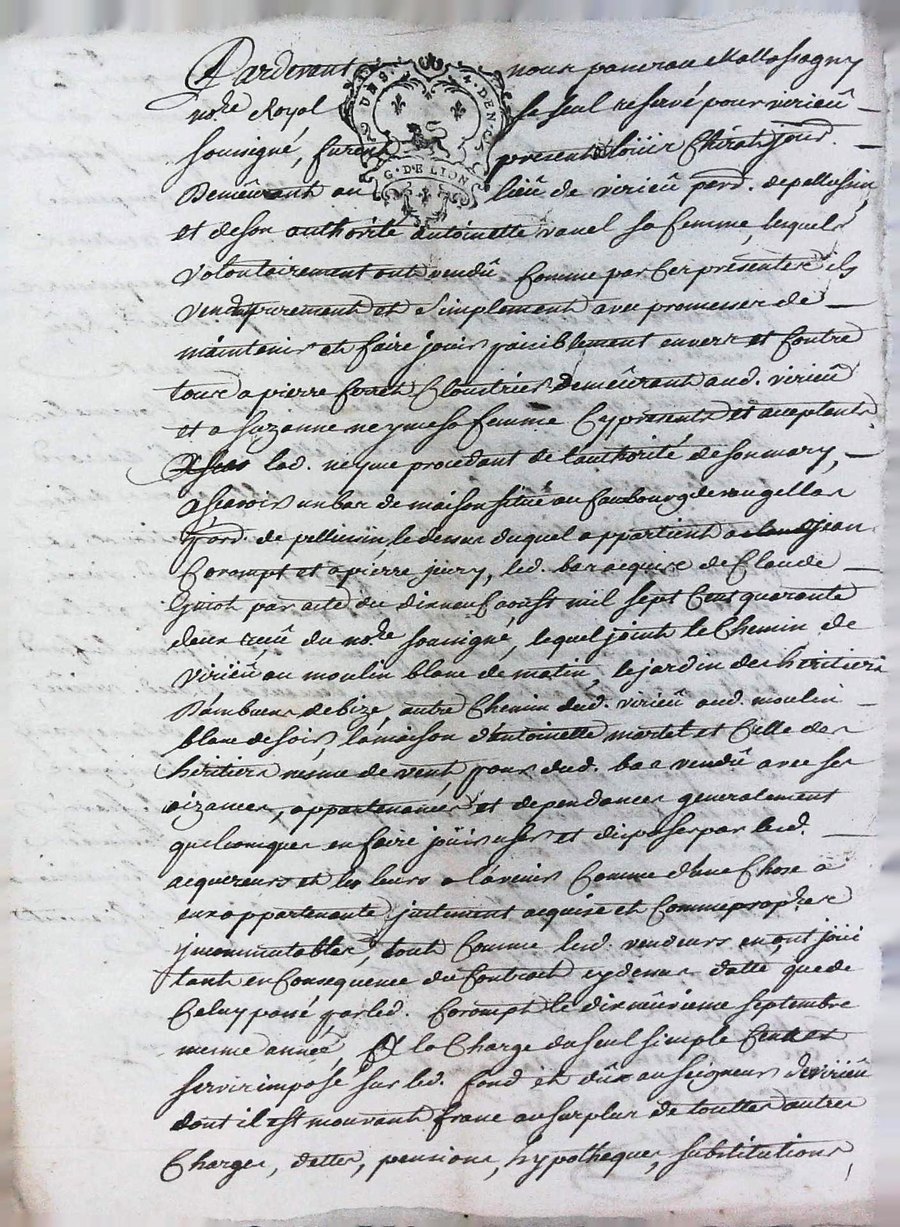 Pardevant nous pancrau Mattossagny
UN S. 4. DEN.
G. DE LION
no.re Royal le seul reservé pour virieû
soussigné, furent present Loüis Chirat jourd.
Demeûrant au lieû de virieû parr. de pellussin,
et de son authorité antoinette vanel sa femme, lequels
volontairement ont vendû comme par ces presentes ils
vend purement et simplement avec promesses de
maintenir et faire joüir paisiblement envers et contre
tous a pierre foret Cloutrier demeûrant aud. virieû
et a suzanne neyme sa femme cy presents et acceptants
lad. neyme procedant de l'authorité de son mary,
ascavoir un bas de maison situé au faubourg de
parr. de pellussin, le dessus duquel appartient a jean
Corompt et a pierre jury, led. bas acquis de Claude
Guiot par acte du dixneuf aoust mil sept Cent quarante
deux receû du no.re soussigné, lequel joint le Chemin de
virieû au moulin blanc de matin, le jardin des héritiers
Dambuent de bize, autre Chemin dud. virieû aud. moulin
blanc de soir, la maison d'antoinette mortet et Celle des
héritiers de vent, pour dud. bas vendû avec ses
aizances, appartenances et dependances generalement
quelconques en faire joüir user et disposer par lesd.
acquereurs et les leurs a l'avenir Comme d'une Chose a
eux appartenante justement acquise et Comme propres
jncommutables, tout Comme lesd. vendeurs en ont joüi
tant en Consequence du Contract cy dessus datté que de
Celuy passé par led. Corompt le dixneûvieme septembre
meme année, a la Charge du seul simple Cens et
servis imposé sur led. fond et dûx au seigneur de virieû
dont il est mouvant franc au surplus de touttes autres
Charges, dettes, pensions, hypotheques, substitutions,